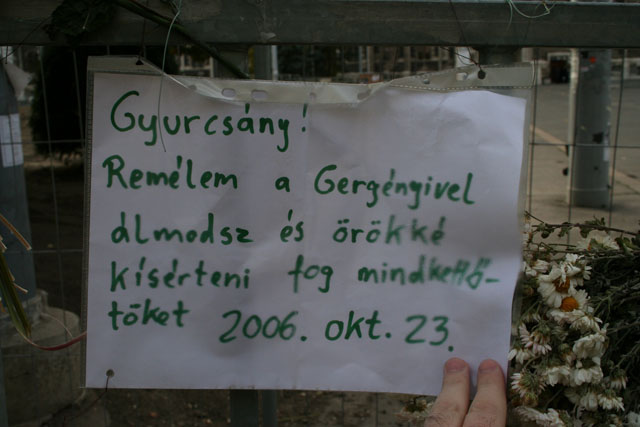 Gyurcsány!
Remélem a Gergényivel
álmodsz és örökké
kísérteni fog mindkettő-
töket 2006. okt. 23.